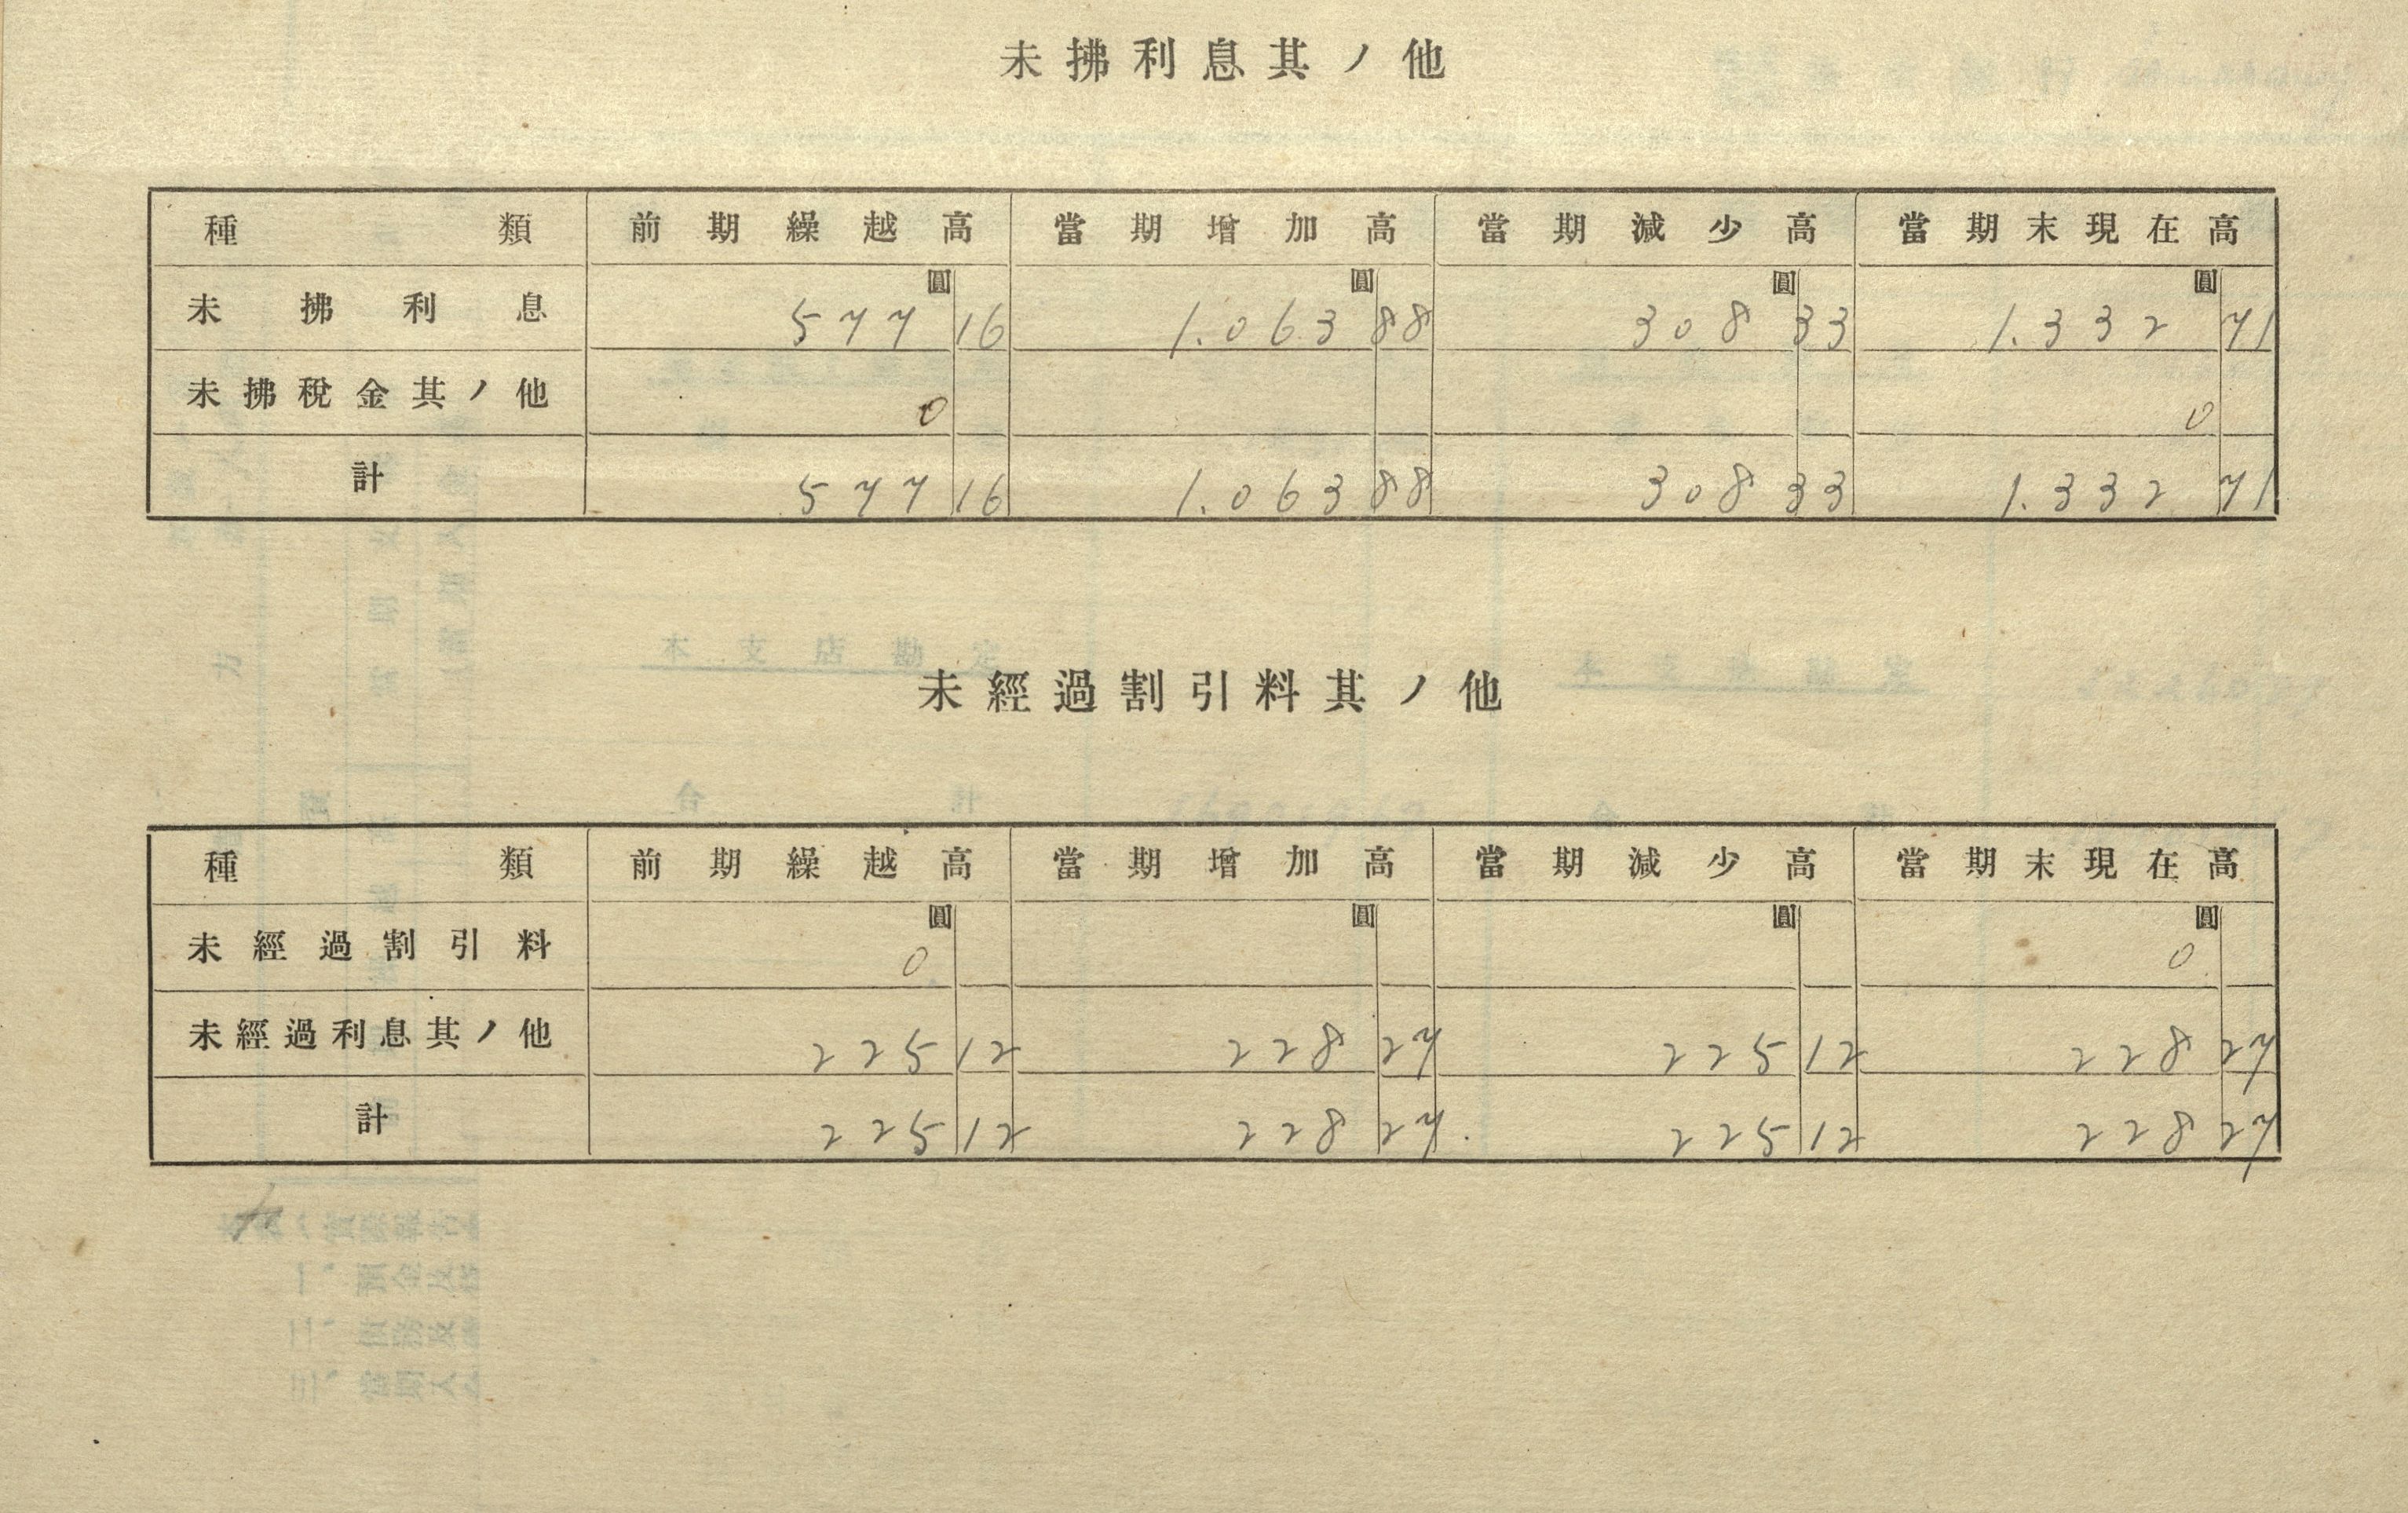 未拂利息其ノ他
種類 前期繰越高 當期増加高 當期減少高 當期末現在高
圓 圓 圓 圓
未拂利息 577 16 1.063 88 308 33 1.332 71
未拂稅金其ノ他 0 0
計 577 16 1.063 88 308 33 1.332 71
未經過割引料其ノ他
種類 前期繰越高 當期増加高 當期減少高 當期末現在高
圓 圓 圓 圓
未經過割引料 0 0
未經過利息其ノ他 225 12 228 27 225 12 228 27
計 225 12 228 27 225 12 228 27
本支店勘定
合計